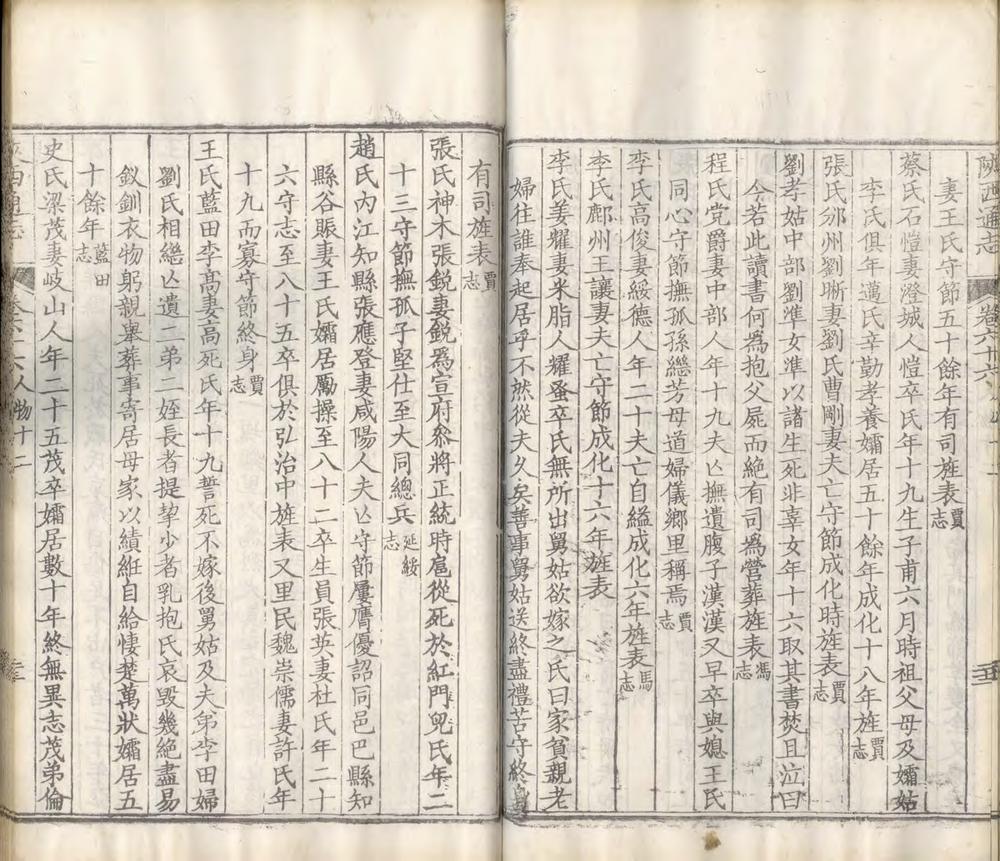 陝西通志
卷六十六
妻王氏守節五十餘年有司旌表賈志
蔡氏石愷妻澄城人愷卒氏年十九生子甫六月時祖父母及孀姑
李氏俱年邁氏辛勤孝養孀居五十餘年成化十八年旌賈志
張氏邠州劉晰妻劉氏曹剛妻夫亡守節成化時旌表賈志
劉孝姑中部劉準女準以諸生死非辜女年十六取其書焚且泣曰
今若此讀書何為抱父屍而絶有司為營葬旌表馮志
程氏党爵妻中部人年十九夫亾撫遺腹子漢漢又早卒與媳王氏
同心守節撫孤孫繼芳母道婦儀鄉里稱焉賈志
李氏高俊妻綏德人年二十夫亡自縊成化六年旌表馬志
李氏鄜州王讓妻夫亡守節成化十六年旌表
李氏姜耀妻米脂人耀蚤卒氏無所出舅姑欲嫁之氏曰家貧親老
婦往誰奉起居乎不然從夫久矣善事舅姑送終盡禮苦守終身
有司旌表賈志
張氏神木張銳妻銳為宣府叅將正統時扈從死於紅門兒氏年二
十三守節撫孤子堅仕至大同總兵延綏志
趙氏内江知縣張應登妻咸陽人夫亾守節屢膺優詔同邑巴縣知
縣谷賬妻王氏孀居勵操至八十二卒生員張英妻杜氏年二十
六守志至八十五卒俱於弘治中旌表又里民魏崇儒妻許氏年
十九而寡守節終身賈志
王氏藍田李高妻高死氏年十九誓死不嫁後舅姑及夫弟李田婦
劉氏相繼亾遺二弟二姪長者提挈少者乳抱氏哀毀幾絶盡易
釵釧衣物躬親舉葬事寄居母家以績絍自給悽楚萬狀孀居五
十餘年藍田志
史氏梁茂妻岐山人年二十五茂卒孀居數十年終無異志茂弟倫
西通志
卷六十六人物十二